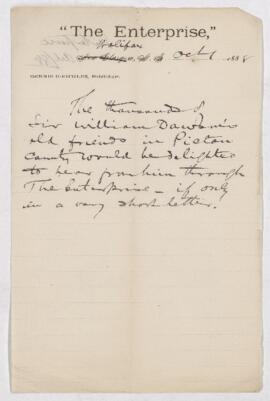 "The Enterprise,"
Halifax
N. S. Oct 1 1888
The thousands of
Sir William Dawson's
old friends in Pictou
County would be delighted
to hear from him through
The Enterprise - if only
in a very short letter.